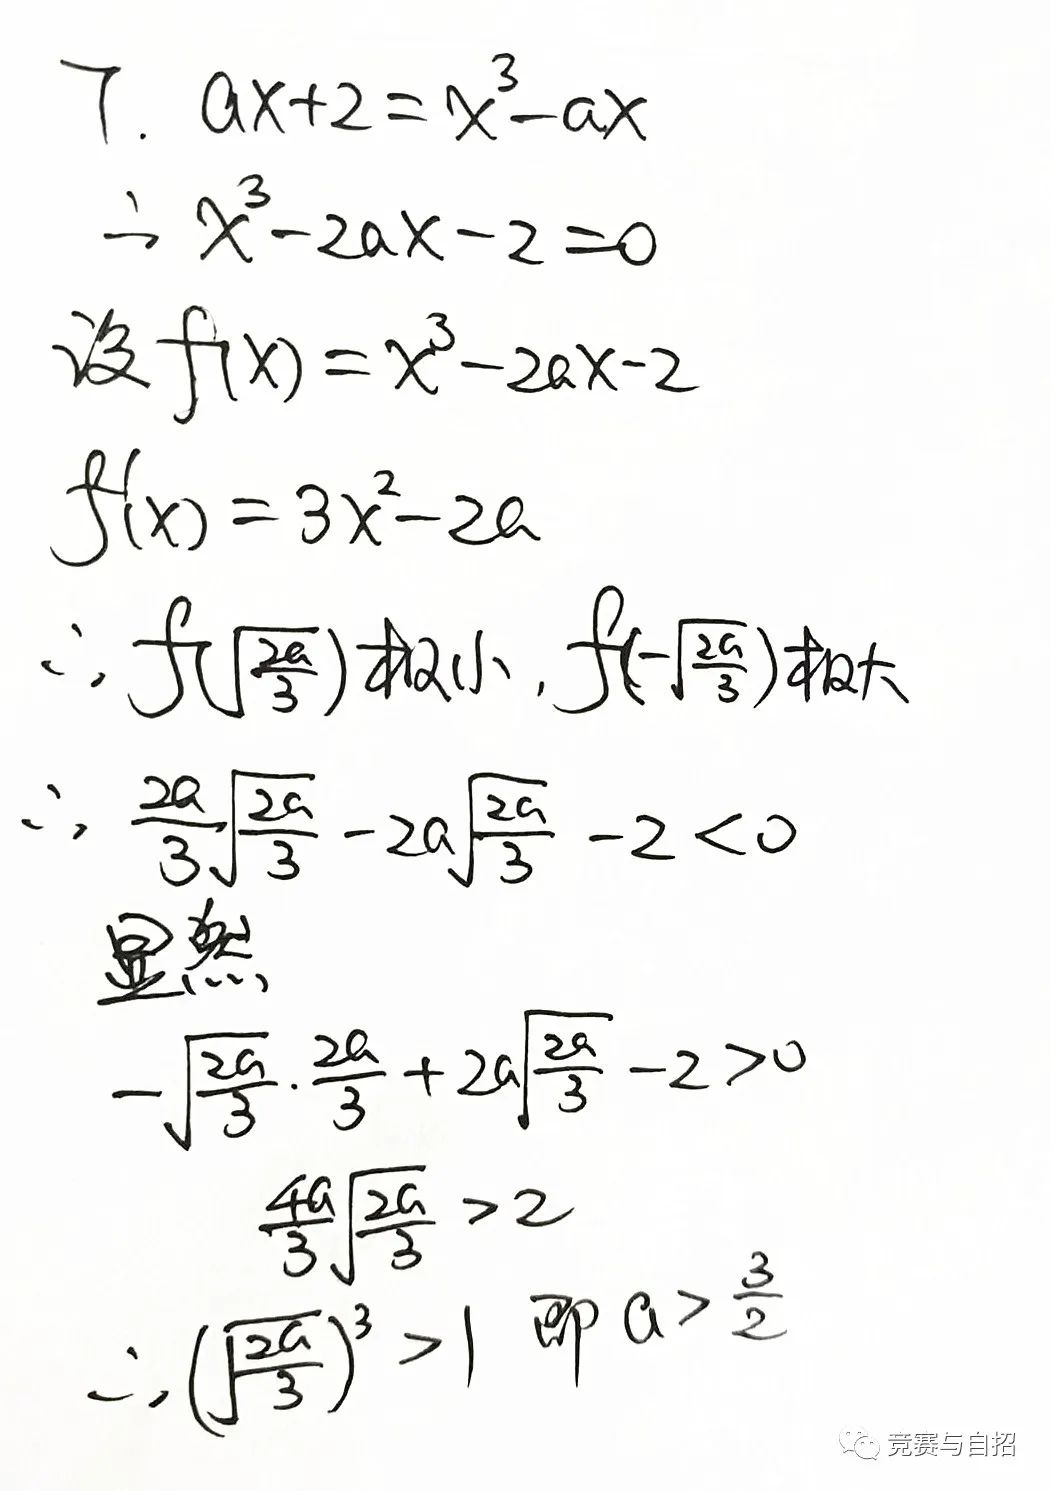 7. ax+2=x³-ax
∴ x³-2ax-2=0
设 f(x)=x³-2ax-2
f'(x)=3x²-2a
∴ f(√(2a/3))极小, f(-√(2a/3))极大
∴ 2a/3 √(2a/3) - 2a√(2a/3) - 2 < 0
显然
-√(2a/3) · 2a/3 + 2a√(2a/3) - 2 > 0
4a/3 √(2a/3) > 2
∴ (√(2a/3))³ > 1 即 a > 3/2
竞赛与自招